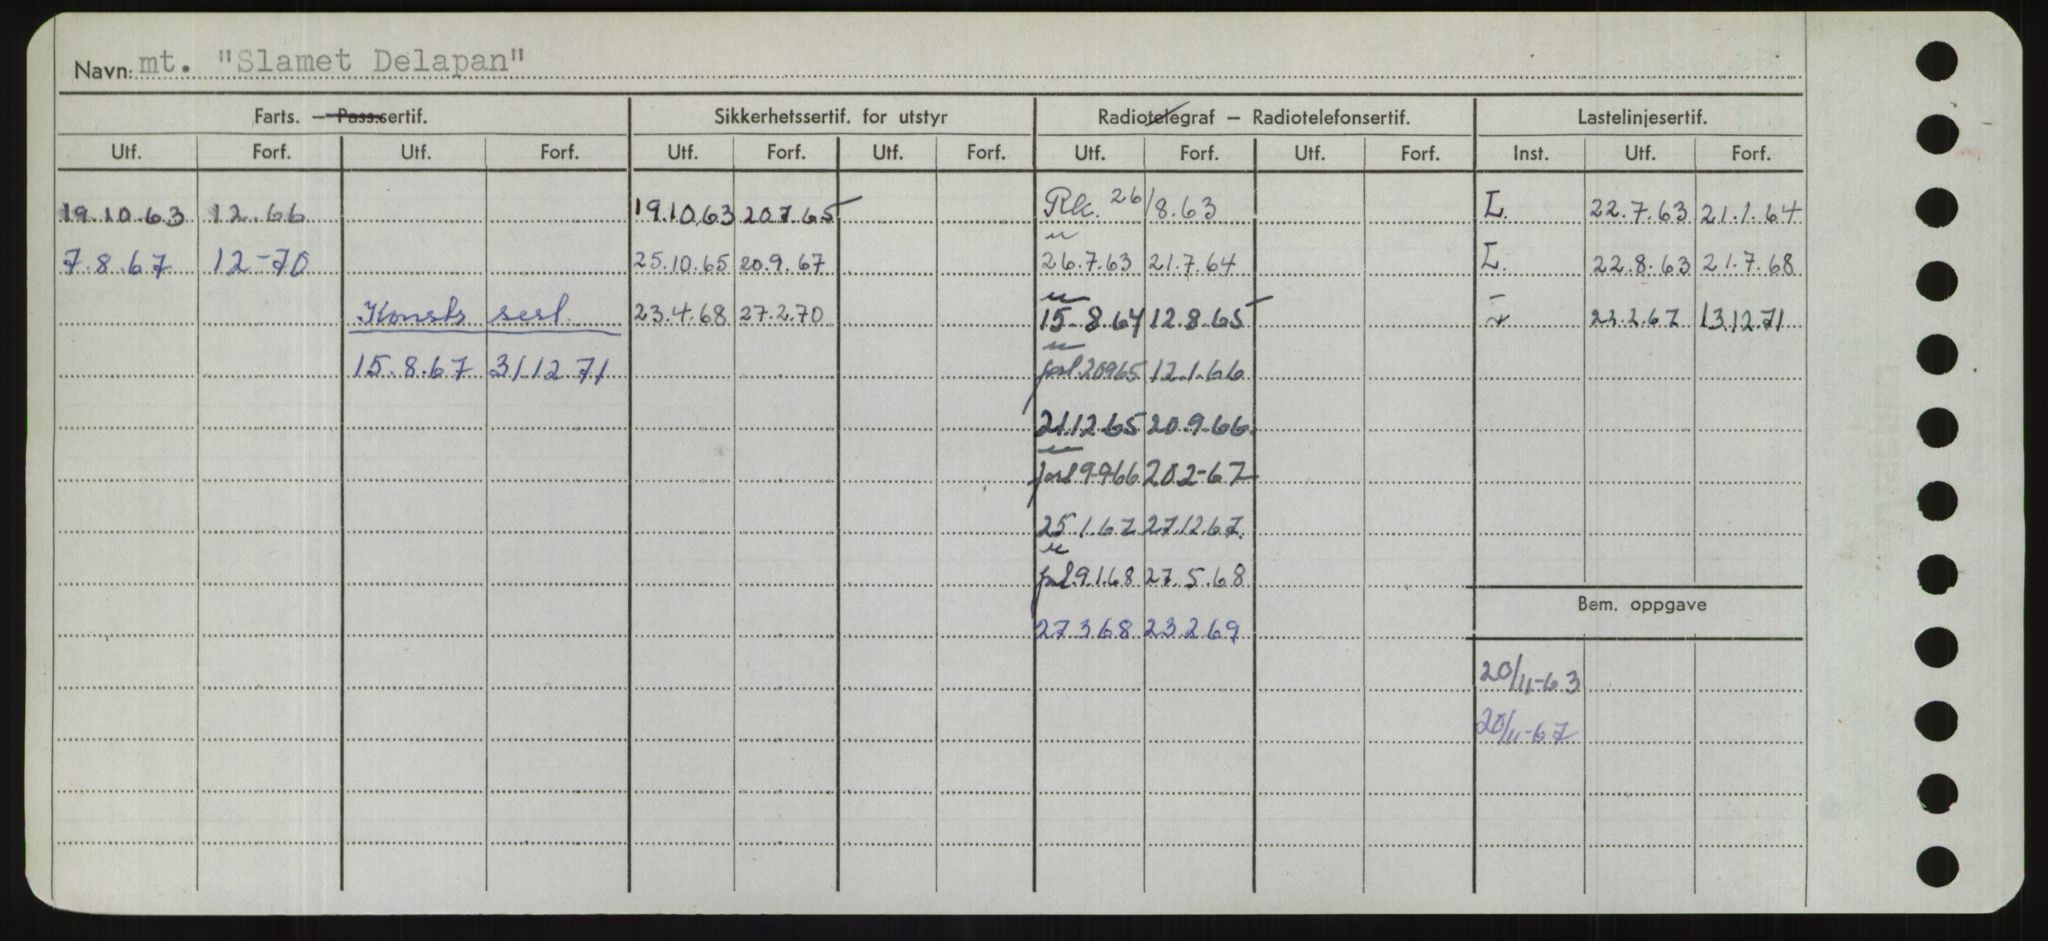 Navn: mt. "Slamet Delapan"
Farts. — Pass.sertif. Sikkerhetssertif. for utstyr Radiotelegraf — Radiotelefonsertif. Lastelinjesertif.
Utf. Forf. Utf. Forf. Utf. Forf. Utf. Forf. Utf. Forf. Utf. Forf. Inst. Utf. Forf.
19.10.63 12.66 19.10.63 20.7.65 26/8.63 L. 22.7.63 21.1.64
7.8.67 12-70 25.10.65 20.9.67 26.7.63 21.7.64 L. 22.8.63 21.7.68
23.4.68 27.2.70 15-8.64 12.8.65 13.12.71
15.8.67 31.12.71 12.1.66
21.12.65 20.9.66
20.2-67
25.1.67 27.12.67
9.1.68 27.5.68
Bem. oppgave
27.3.68 23.2.69
20/11-63
20/11-67